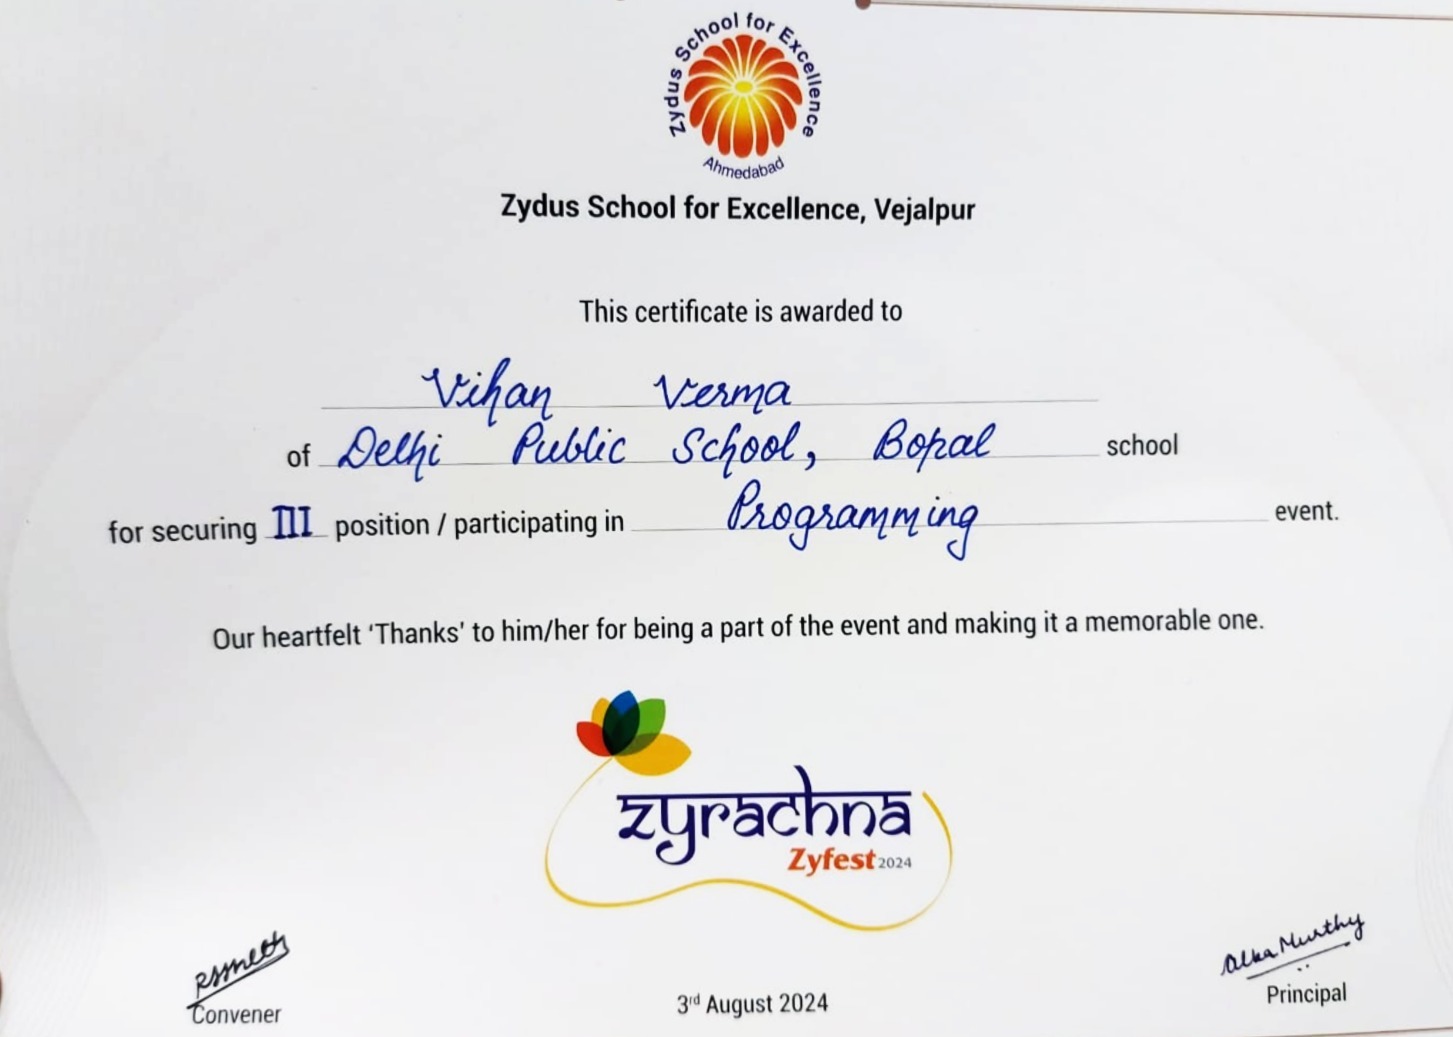 Zydus School for Excellence
Ahmedabad
Zydus School for Excellence, Vejalpur
This certificate is awarded to
Vihan Verma
of Delhi Public School, Bopal school
for securing III position / participating in Programming event.
Our heartfelt ‘Thanks’ to him/her for being a part of the event and making it a memorable one.
zyrachna
Zyfest 2024
Alka Murthy
Convener
3rd August 2024
Principal